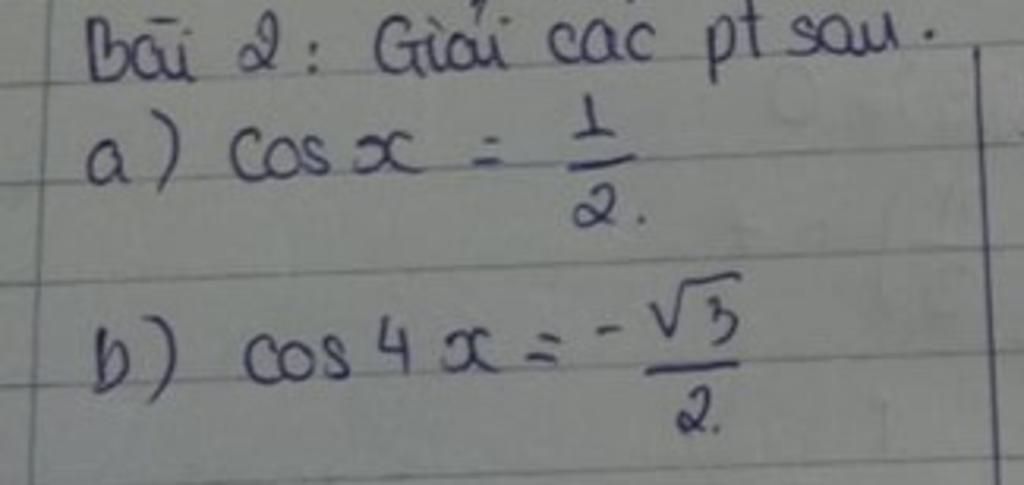 Bài 2: Giải các pt sau.
a) cos x = 1/2.
b) cos 4x = -√3/2.